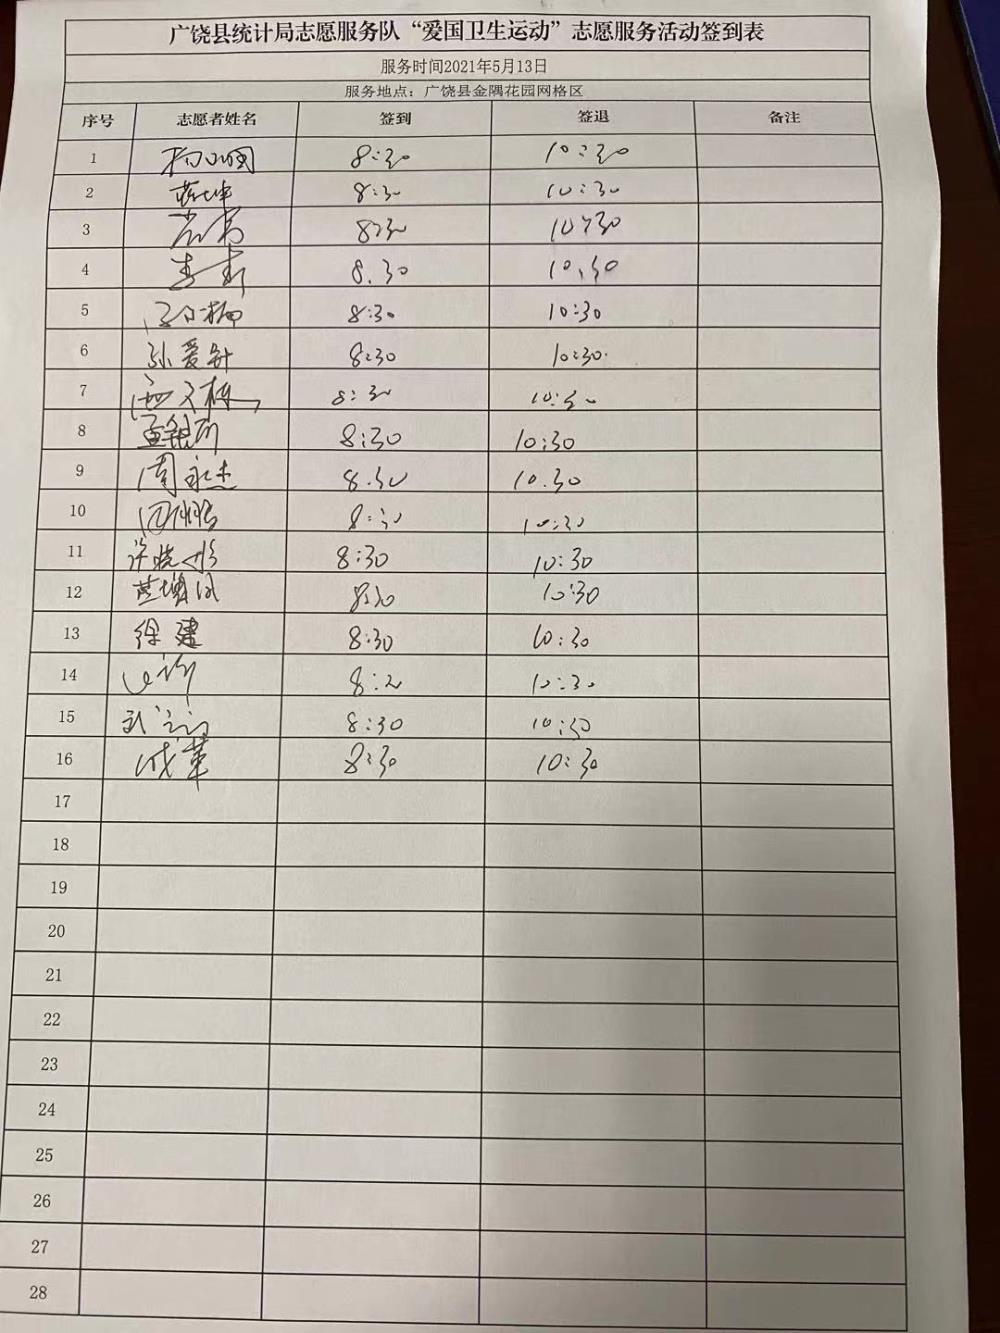 广饶县统计局志愿服务队“爱国卫生运动”志愿服务活动签到表
服务时间2021年5月13日
服务地点：广饶县金隅花园网格区
序号 志愿者姓名 签到 签退 备注
1 8:30 10:30
2 8:30 10:30
3 8:30 10:30
4 8.30 10.30
5 8:30 10:30
6 孙爱 8:30 10:30
7 8:30 10:30
8 8:30 10:30
9 周永杰 8.30 10.30
10 8:30 10:30
11 许晓 8:30 10:30
12 8:30 10:30
13 徐建 8:30 10:30
14 8:30 10:30
15 8:30 10:30
16 成革 8:30 10:30
17
18
19
20
21
22
23
24
25
26
27
28